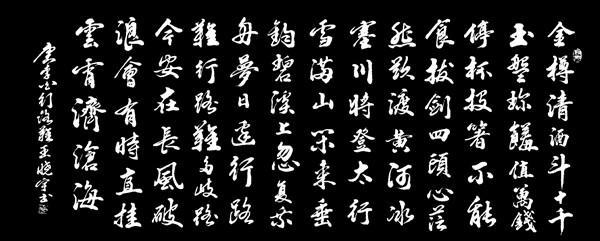 金樽清酒斗十千
玉盤珍饈值萬錢
停杯投箸不能
食拔劍四顧心茫
然欲渡黃河冰
塞川將登太行
雪滿山閑來垂
釣碧溪上忽復乘
舟夢日邊行路
難行路難多歧路
今安在長風破
浪會有時直挂
雲宵濟滄海
李白行路難